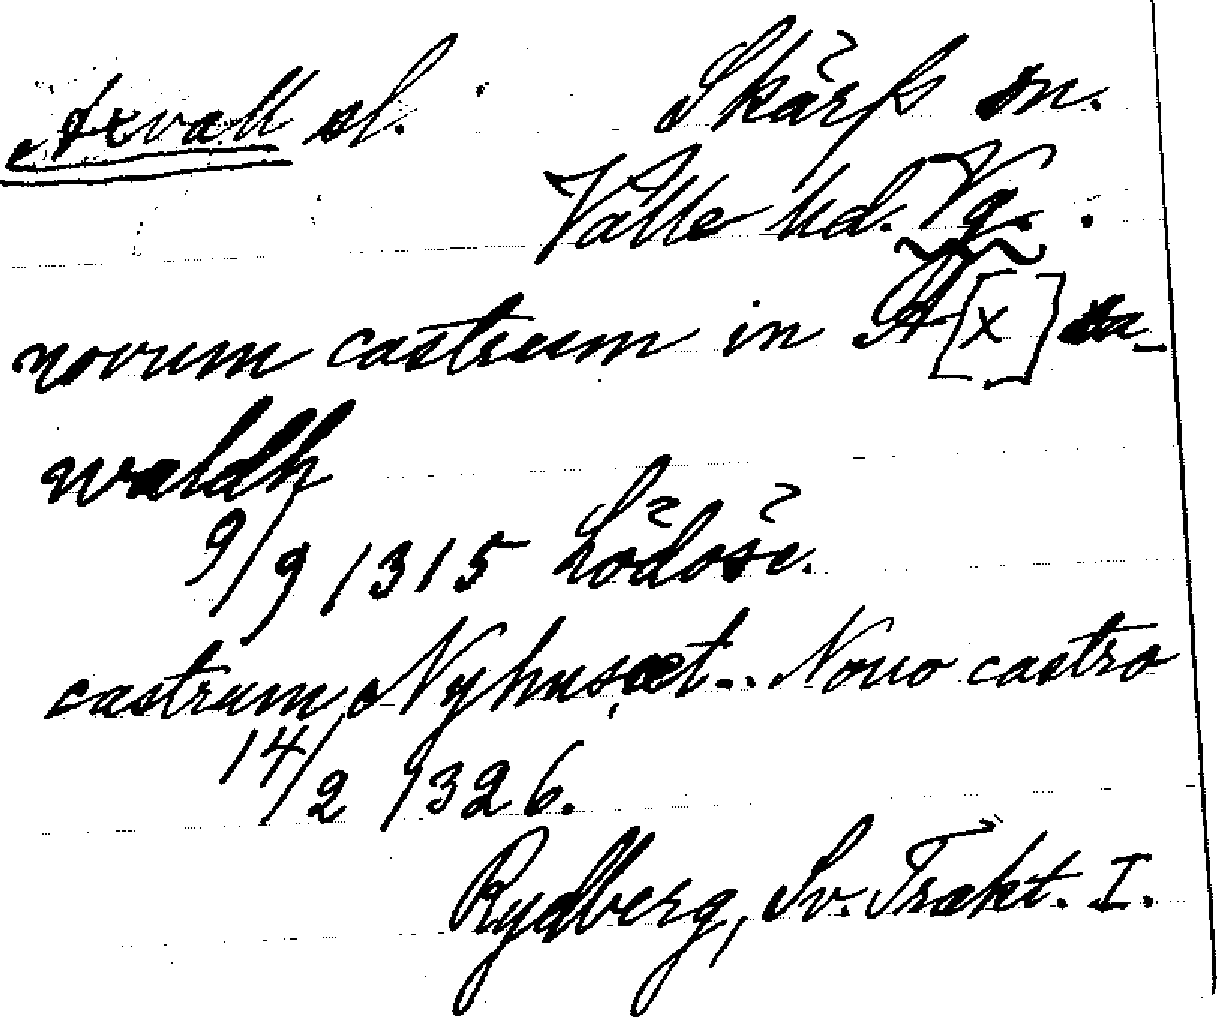 Axvall sl. Skärfs sn.
Valle hd. Vg.
novum castrum in A[x]sa-
waldh
9/9 1315 Lödöse.
castrum Nyhusæt.. Nouo castro
14/2 1326.
Rydberg, Sv. Trakt. I.